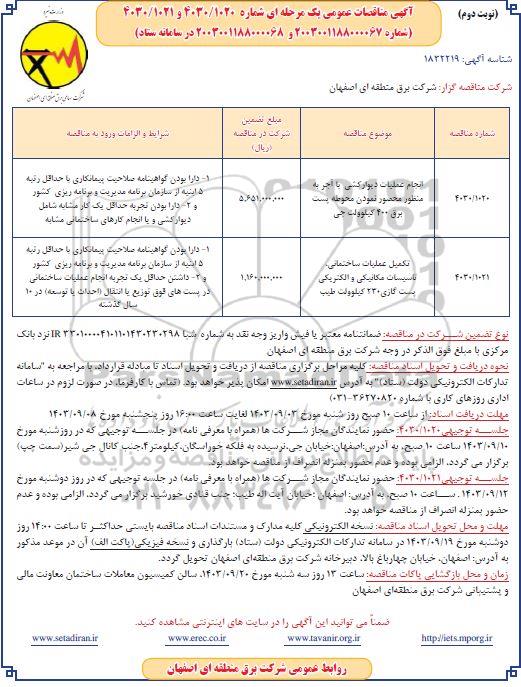 (نوبت دوم)
آگهی مناقصات عمومی یک مرحله ای شماره ۴۰۳۰/۱۰۲۰ و ۴۰۳۰/۱۰۲۱
(شماره ۲۰۰۳۰۰۱۱۸۸۰۰۰۰۶۷ و ۲۰۰۳۰۰۱۱۸۸۰۰۰۰۶۸ در سامانه ستاد)
وزارت نیرو
شرکت سهامی برق منطقه ای اصفهان
شناسه آگهی: ۱۸۳۲۲۱۹
شرکت مناقصه گزار: شرکت برق منطقه ای اصفهان
شماره مناقصه
موضوع مناقصه
مبلغ تضمین شرکت در مناقصه (ریال)
شرایط و الزامات ورود به مناقصه
۴۰۳۰/۱۰۲۰
انجام عملیات دیوارکشی با آجر به
منظور محصور نمودن محوطه پست
برق ۴۰۰ کیلوولت جی
۵,۶۵۱,۰۰۰,۰۰۰
۱- دارا بودن گواهینامه صلاحیت پیمانکاری با حداقل رتبه
۵ ابنیه از سازمان برنامه مدیریت و برنامه ریزی کشور
و ۲- دارا بودن تجربه حداقل یک کار مشابه شامل
دیوارکشی و یا انجام کارهای ساختمانی مشابه
۴۰۳۰/۱۰۲۱
تکمیل عملیات ساختمانی
تاسیسات مکانیکی و الکتریکی
پست گازی ۲۳۰ کیلوولت طیب
۱,۱۶۰,۰۰۰,۰۰۰
۱- دارا بودن گواهینامه صلاحیت پیمانکاری با حداقل رتبه
۵ ابنیه از سازمان برنامه مدیریت و برنامه ریزی کشور
و ۲- داشتن حداقل یک تجربه انجام عملیات ساختمانی
در پست های فوق توزیع یا انتقال (احداث یا توسعه) در ۱۰
سال گذشته
نوع تضمین شرکت در مناقصه: ضمانتنامه معتبر یا فیش واریز وجه نقد به شماره شبا IR ۳۳۰۱۰۰۰۰۴۱۰۱۱۰۱۴۳۰۲۳۰۲۹۸ نزد بانک
مرکزی با مبلغ فوق الذکر در وجه شرکت برق منطقه ای اصفهان
نحوه دریافت و تحویل اسناد مناقصه: کلیه مراحل برگزاری مناقصه از دریافت و تحویل اسناد تا مبادله قرارداد، با مراجعه به "سامانه
تدارکات الکترونیکی دولت (ستاد)" به آدرس www.setadiran.ir امکان پذیر خواهد بود. (تماس با کارفرما، در صورت لزوم در ساعات
اداری روزهای کاری با شماره ۳۶۲۷۰۸۲۰-۰۳۱)
مهلت دریافت اسناد: از ساعت ۱۰ صبح روز شنبه مورخ ۱۴۰۳/۰۹/۰۳ لغایت ساعت ۱۶:۰۰ روز پنجشنبه مورخ ۱۴۰۳/۰۹/۰۸
جلسه توجیهی ۴۰۳۰/۱۰۲۰: حضور نمایندگان مجاز شرکت ها (همراه با معرفی نامه) در جلسه توجیهی که در روز شنبه مورخ
۱۴۰۳/۰۹/۱۰ ساعت ۱۰ صبح، به آدرس: اصفهان: خیابان جی، نرسیده به فلکه خوراسگان، کیلومتر۴، جنب کانال جی شیر(سمت چپ)
برگزار می گردد، الزامی بوده و عدم حضور بمنزله انصراف از مناقصه خواهد بود.
جلسه توجیهی ۴۰۳۰/۱۰۲۱: حضور نمایندگان مجاز شرکت ها (همراه با معرفی نامه) در جلسه توجیهی که در روز دوشنبه مورخ
۱۴۰۳/۰۹/۱۲ ، ساعت ۱۰ صبح، به آدرس: اصفهان :خیابان آیت اله طیب: جنب قنادی خورشید برگزار می گردد، الزامی بوده و عدم
حضور بمنزله انصراف از مناقصه خواهد بود.
مهلت و محل تحویل اسناد مناقصه: نسخه الکترونیکی کلیه مدارک و مستندات اسناد مناقصه بایستی حداکثر تا ساعت ۱۴:۰۰ روز
دوشنبه مورخ ۱۴۰۳/۰۹/۱۹ در سامانه تدارکات الکترونیکی دولت (ستاد) بارگذاری و نسخه فیزیکی(پاکت الف) آن در موعد مذکور
به آدرس: اصفهان، خیابان چهارباغ بالا، دبیرخانه شرکت برق منطقه‌ای اصفهان تحویل گردد.
زمان و محل بازگشایی پاکات مناقصه: ساعت ۱۳ روز سه شنبه مورخ ۱۴۰۳/۰۹/۲۰، سالن کمیسیون معاملات ساختمان معاونت مالی
و پشتیبانی شرکت برق منطقه‌ای اصفهان
ضمناً می توانید این آگهی را در سایت های اینترنتی مشاهده کنید.
http://iets.mporg.ir
www.tavanir.org.ir
www.erec.co.ir
www.setadiran.ir
روابط عمومی شرکت برق منطقه ای اصفهان